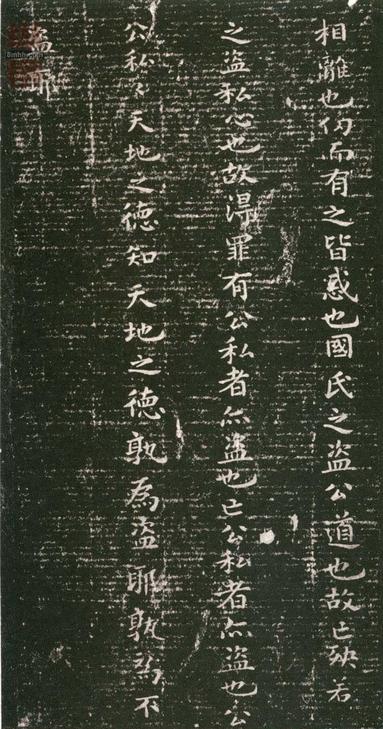 相離也仞而有之皆惑也國氏之盜公道也故亡殃若
之盜私心也故得罪有公私者亦盜也亡公私者亦盜也公
公私〻天地之德知天地之德孰為盜耶孰為不
盜耶